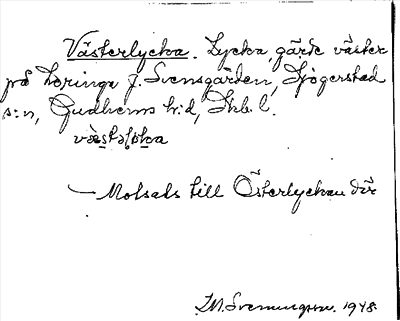 Västerlycka. Lycka, gärde väster
på Loringa J. Svensgården, Sjögerstad
s:n, Gudhems h:d, Skb. l.
Motsats till Österlyckan där
J.M. Svenningson. 1948.